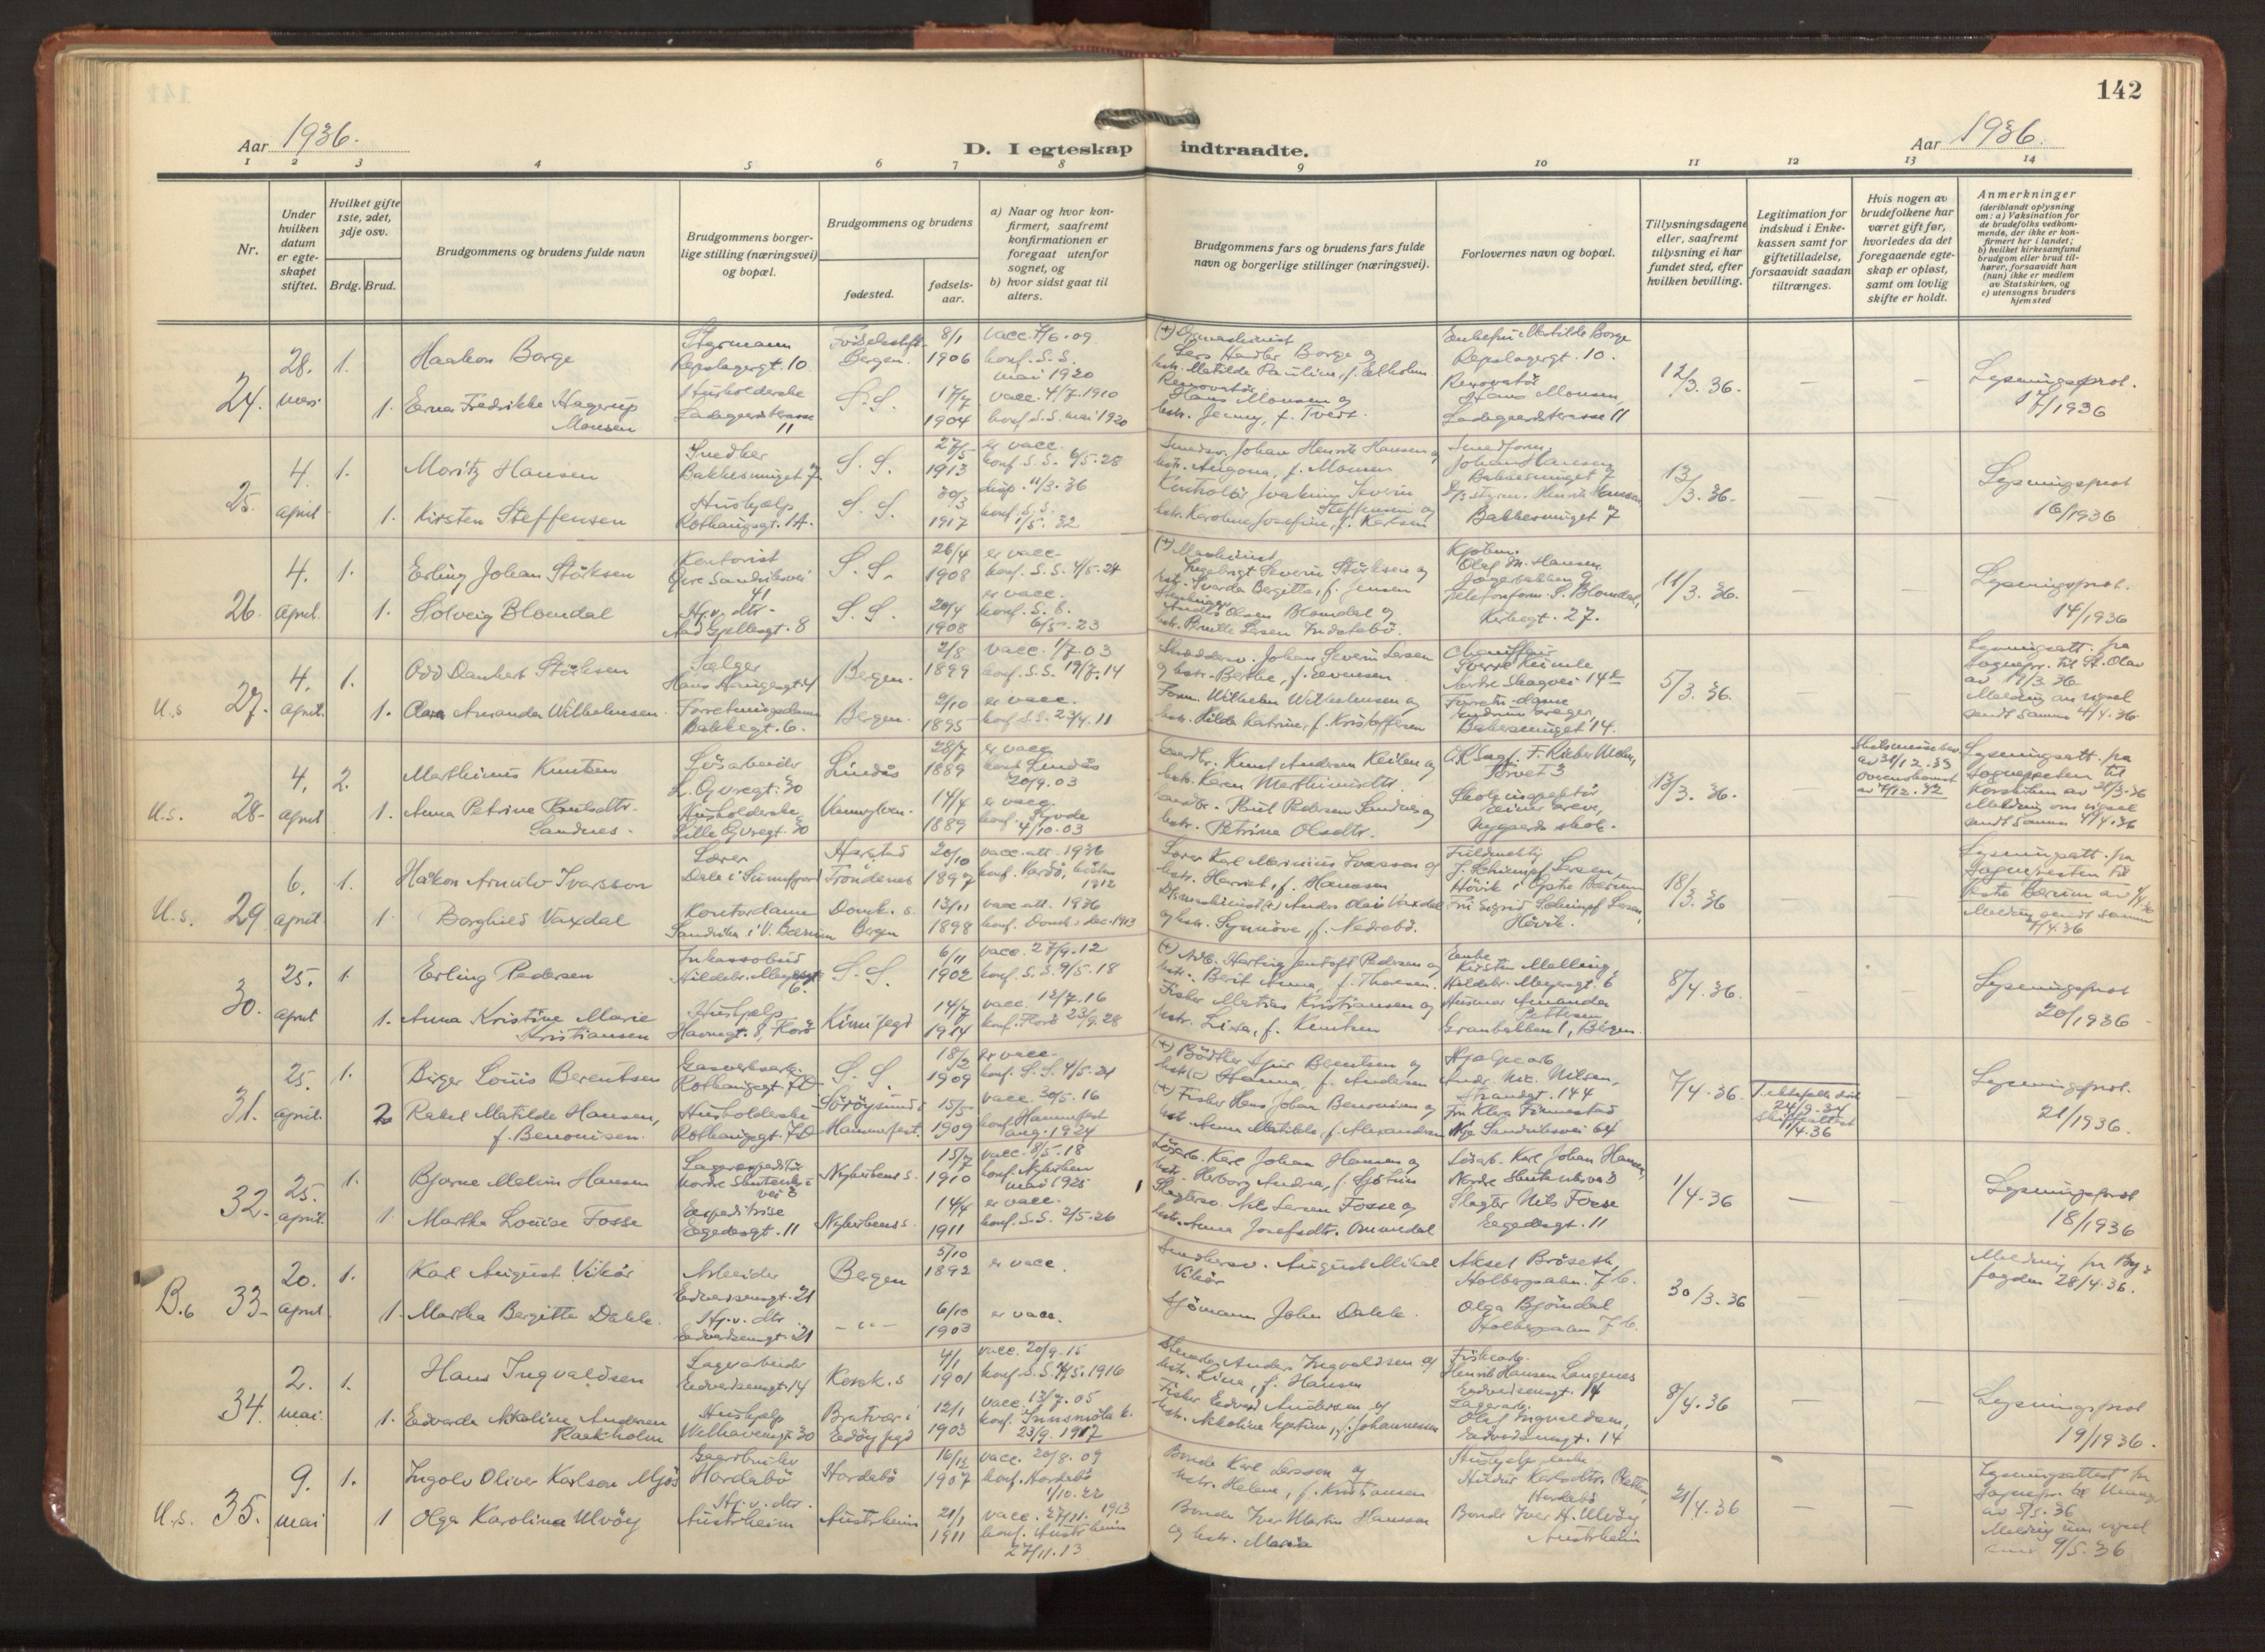 142
Aar 1936.
D. I egteskap indtraadte.
Aar 1936.
1 2 3 4 5 6 7 8 9 10 11 12 13 14
Nr.
Under hvilken datum er egteskapet stiftet.
Hvilket gifte 1ste, 2det, 3dje osv.
Brdg. Brud.
Brudgommens og brudens fulde navn
Brudgommens borgerlige stilling (næringsvei) og bopæl.
Brudgommens og brudens
fødested.
fødselsaar.
a) Naar og hvor konfirmert, saafremt konfirmationen er foregaat utenfor sognet, og
b) hvor sidst gaat til alters.
Brudgommens fars og brudens fars fulde navn og borgerlige stillinger (næringsvei).
Forlovernes navn og bopæl.
Tillysningsdagene eller, saafremt tillysning ei har fundet sted, efter hvilken bevilling.
Legitimation for indskud i Enkekassen samt for giftetilladelse, forsaavidt saadan tiltrænges.
Hvis nogen av brudefolkene har været gift før, hvorledes da det foregaaende egteskap er opløst, samt om lovlig skifte er holdt.
Anmerkninger
(deriblandt oplysning om: a) Vaksination for de brudefolks vedkommende, der ikke er konfirmert her i landet; b) hvilket kirkesamfund brudgom eller brud tilhører, forsaavidt han (hun) ikke er medlem av Statskirken, og c) utensogns bruders hjemsted
24. 28. mars 1. Haakon Borge
Styrmann
Repslagergt. 10
Fødselsstift. Bergen.
8/1 1906
vacc. 7/6.09
konf. S.S.
mai 1920
Lars Borge og
hstr. Matilde Pauline,
Enkefru Matilde Borge
Repslagergt. 10.
12/3.36.
Lysningsprot.
17/1936
1. Erna Fredrikke Hagerup Monsen
Husholderske
Ladegaardsterrasse 11
S.S.
17/7 1904
vacc. 4/7.1910
konf. S.S. mai 1920
Renovatör
Hans Monsen og
hstr. Jenny, f. Tvert.
Renovatör
Hans Monsen,
Ladegaardsterasse 11
25. 4. april 1. Moritz Hansen
Snedker
Bakkesmuget 7
S.S.
27/5 1913
er vacc.
konf. S.S. 6/5.28
Johan Henrik Hansen og
hstr. Angona, f. Monsen
Johan Hansen
Bakkesmuget 7
13/3.36.
Lysningsprot
16/1936
1. Kirsten Steffensen
Hushjelp
Rothaugsgt. 1A.
S.S.
30/3 1917
disp. 11/3.36
konf. S.S.
1/5.32
Kontrolör Joakim Severin Steffensen og
hstr. Karoline Josefine, f. Karlsen
Bakkesmuget 7
26. 4. april 1. Erling Johan Störksen
Kontorist
Övre Sandviksvei 41
S.S.
26/4 1908
er vacc.
konf. S.S. 4/5.24
(+) Maskinist
Ingebrigt Severin Störksen og
hstr. Bergitte, f. Jensen
Kjöbm.
Olaf M. Hansen
Jægerbakken 9
11/3.36.
Lysningsprot.
14/1936
1. Solveig Blomdal
Hj.v. dtr.
Aad Gjellesgt. 8
S.S.
20/4 1908
er vacc.
6/5.23
Olsen Blomdal og
hstr. Pernille Larsen Indstebö.
S. Blomdal,
Kirkegt. 27.
U.s 27. 4. april 1. Odd Danbert Störksen
Sælger
Hans Haugesgt. 4
Bergen.
2/8 1899
vacc. 1/7.03
konf. S.S. 19/7.14
Johan Severin Larsen
og hstr. Berthe, f. Evensen
Chauffför
Sverre Kimle
5/3.36.
Lysningsatt. fra
Sognepr. til St. Olav
Melding om vigsel
sendt samme 4/4.36
1. Clara Amanda Wilhelmsen
Forretningsdame
Bakkegt. 6.
Bergen.
2/10 1895
er vacc.
konf. S.S. 23/4.11
Form. Wilhelm Wilhelmsen og
hstr. Hilda Katrine, f. Kristoffersen
Bakkesmuget 14.
U.s. 28. 4. april 2. Marthinus Knutsen
Lösarbeider
L. Övregt. 30
Lindås
28/7 1889
er vacc.
konf. Lindås
20/9.03
Gaardbr. Knut Andersen Keilen og
hstr. Karen Marthinusdtr.
Torvet 3
13/3.36.
Lysningsatt. fra
Sognepresten til
Korskirken av
Melding om vigsel
sendt samme 4/4.36
1. Anna Petrine Paulsdtr. Sandnes.
Husholderske
Lille Övregt. 30
Vannylven.
14/4 1889
er vacc.
konf. Syvde
4/10.03
Gaardbr. Paul Pedersen Sandnes og
hstr. Petrine Olsdtr.
Skoleinspektör
Einar Greve,
Nygaards skole.
U.s. 29. 6. april 1. Håkon Arnulv Ivarsson
Lærer
Dale i Sunnfjord
Harstad
Trondenes
20/10 1897
vacc. att. 1936
konf. Vardö, hösten 1912
Lærer Karl Marinius Ivarsson og
hstr. Harriet, f. Hanssen
Fuldmektig
J. Schiempf Larsen,
Hövik i Östre Bærum
18/3.36
Lysningsatt. fra
Sognepresten til
Vestre Bærum av
Melding sendt samme
7/4.36
1. Borghild Vaxdal
Kontordame
Sandvika i V. Bærum
Domk. s. Bergen
13/11 1898
vacc att. 1936
konf. Domk.s dec. 1913
Anders Olai Vaxdal
og hstr. Synnöve, f. Nedrebö.
Fru Sigrid Schiempf Larsen,
Hövik.
30. 25. april 1. Erling Pedersen
Inkassobud
Hildebr. Meyersgt 6.
S.S.
6/11 1902
vacc. 27/9.12
konf. S.S. 9/5.18
(+) Arb. Hartvig Jentoft Pedersen og
hstr. Berit Anna, f. Thoresen.
Enke
Kirsten Melling,
Hildebr. Meyersgt. 6
8/4.36.
Lysningsprot
20/1936
1. Anna Kristine Marie Kristiansen
Hushjelp
Havnegt. 8, Florö
Kinn pgd
14/7 1914
vacc. 12/7.16
konf. Florö 23/9.28
Fisker Matias Kristiansen og
hstr. Lisa, f. Knutsen
Husmor Amanda Pettersen
Granbakken 1, Bergen.
31. 25. april. 1. Birger Louis Berentsen
Gasverksarb.
Rothaugsgt. 7D
S.S.
18/2 1909
er vacc.
konf. S.S. 4/5.24
(+) Bödker Berentsen og
hstr. Hanna, f. Andersen
Hjelpearb.
Andr. Nic. Nilsen,
Strandgt. 144
7/4.36
24/9.34
Skifteattest
1/4.36
Lysningsprot.
21/1936.
2 Rakel Matilde Hansen, f. Benonisen.
Husholderske
Rothaugsgt. 7D
Söröysund i
Hammerfest.
15/5 1909
vacc. 30/5.16
konf. Hammerfest
aug. 1924
(+) Fisker Hans Johan Benonisen og
hstr. Anna Matilde, f. Alexandersen
Fru Klara Finnestad
Nye Sandviksvei 64
32. 25. april. 1. Bjarne Malvin Hansen
Lagerexpeditör
Nordre Skutevik vei 8
Nykirkens s.
15/7 1910
vacc. 8/5.18
konf. Nykirken
mai 1925
Lösarb. Karl Johan Hansen og
hstr. Herborg Andrea, f. Sjöström
Lösarb. Karl Johan Hansen,
1/4.36
Lysningsprot
18/1936
1. Martha Louise Fosse
Expeditrise
Egedesgt. 11
Nykirkens s.
14/4 1911
er vacc.
konf. S.S. 2/5.26
Nils Larsen Fosse og
hstr. Anna Josefsdtr. Omundal
Slagter Nils Fosse
Egedesgt. 11
B.6 33. 20. april 1. Karl August Vikör
Arbeider
Edvardsensgt. 21
Bergen
5/10 1892
er vacc.
August Mikal Vikör
Aksel Bröseth,
Holbergsalm. 7 b.
30/3.36
Melding fra By-
fogden 28/4.36.
1. Martha Bergitte Dahle.
Hj.v. dtr.
Edvardsensgt. 21
-"-
6/10 1903
er vacc.
Sjömann John Dahle.
Olga Bjöndal
Holbergsalm 7 b.
34. 2. mai 1. Hans Ingvaldsen
Lagerarbeider
Edvardsensgt. 14
Korsk. s
4/1 1901
vacc. 20/9.15
konf. S.S. 7/5.1916
Anders Ingvaldsen og
hstr. Lina, f. Hansen
Fiskearb.
Henrik Hansen Langenes
Edvardsensgt. 14
8/4.36
Lysningsprot
19/1936.
1. Edvarda Nikoline Andersen Raakholm
Hushjelp
Welhavensgt. 30
Bratvær i
Edöy pgd
12/1 1903
vacc. 13/7.05
konf. Innsmöla k.
23/9.1917
Fisker Edvard Andersen og
hstr. Nikoline f. Johannessen
Lagerarb.
Olaf Ingvaldsen,
Edvardsensgt. 14
U.s. 35. 9. mai 1. Ingolv Oliver Karlsen Mjös
Gaardbruker
Hordabö
Hordabö
16/12 1907
vacc. 20/8.09
konf. Hordabö
1/10.22
Bonde Karl Larsson og
hstr. Helene, f. Kristiansen
Hushjelp, enke
Hildur Karlsdtr.
Hordabö
21/4.36
Lysningsattest fra
av 5/5.36
Melding um vigsel
9/5.36
1 Olga Karolina Ulvöy
Hj.v. dtr.
Austrheim
Austrheim
21/1 1911
vacc. 27/11.1913
konf. Austrheim
27/11.13
Bonde Iver Martin Hansson
og hstr. Maria
Bonde Iver H. Ulvöy
Austrheim